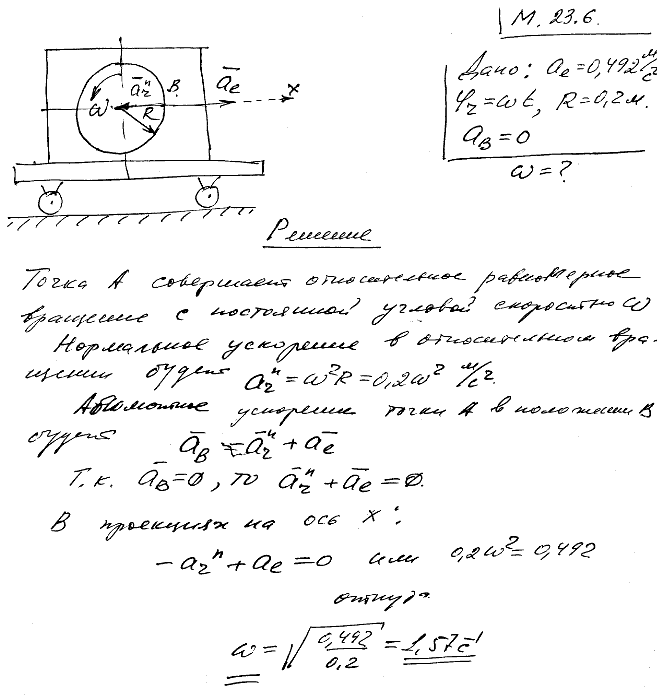 М. 23.6.
Дано: aₑ=0,492 м/с²
φᵣ=ωt, R=0,2м.
a_B=0
ω=?
ω
āᵣⁿ
B.
R
āₑ
x
Решение
Точка А совершает относительное равномерное
вращение с постоянной угловой скоростью ω
Нормальное ускорение в относительном вра-
щении будет aᵣⁿ=ω²R=0,2ω² м/с².
Абсолютное ускорение точки А в положении В
будет ā_B=āᵣⁿ+āₑ
Т.к. ā_B=0, то āᵣⁿ+āₑ=0.
В проекциях на ось x:
-aᵣⁿ+aₑ=0 или 0,2ω²=0,492
откуда
ω=√(0,492/0,2)=1,57c⁻¹